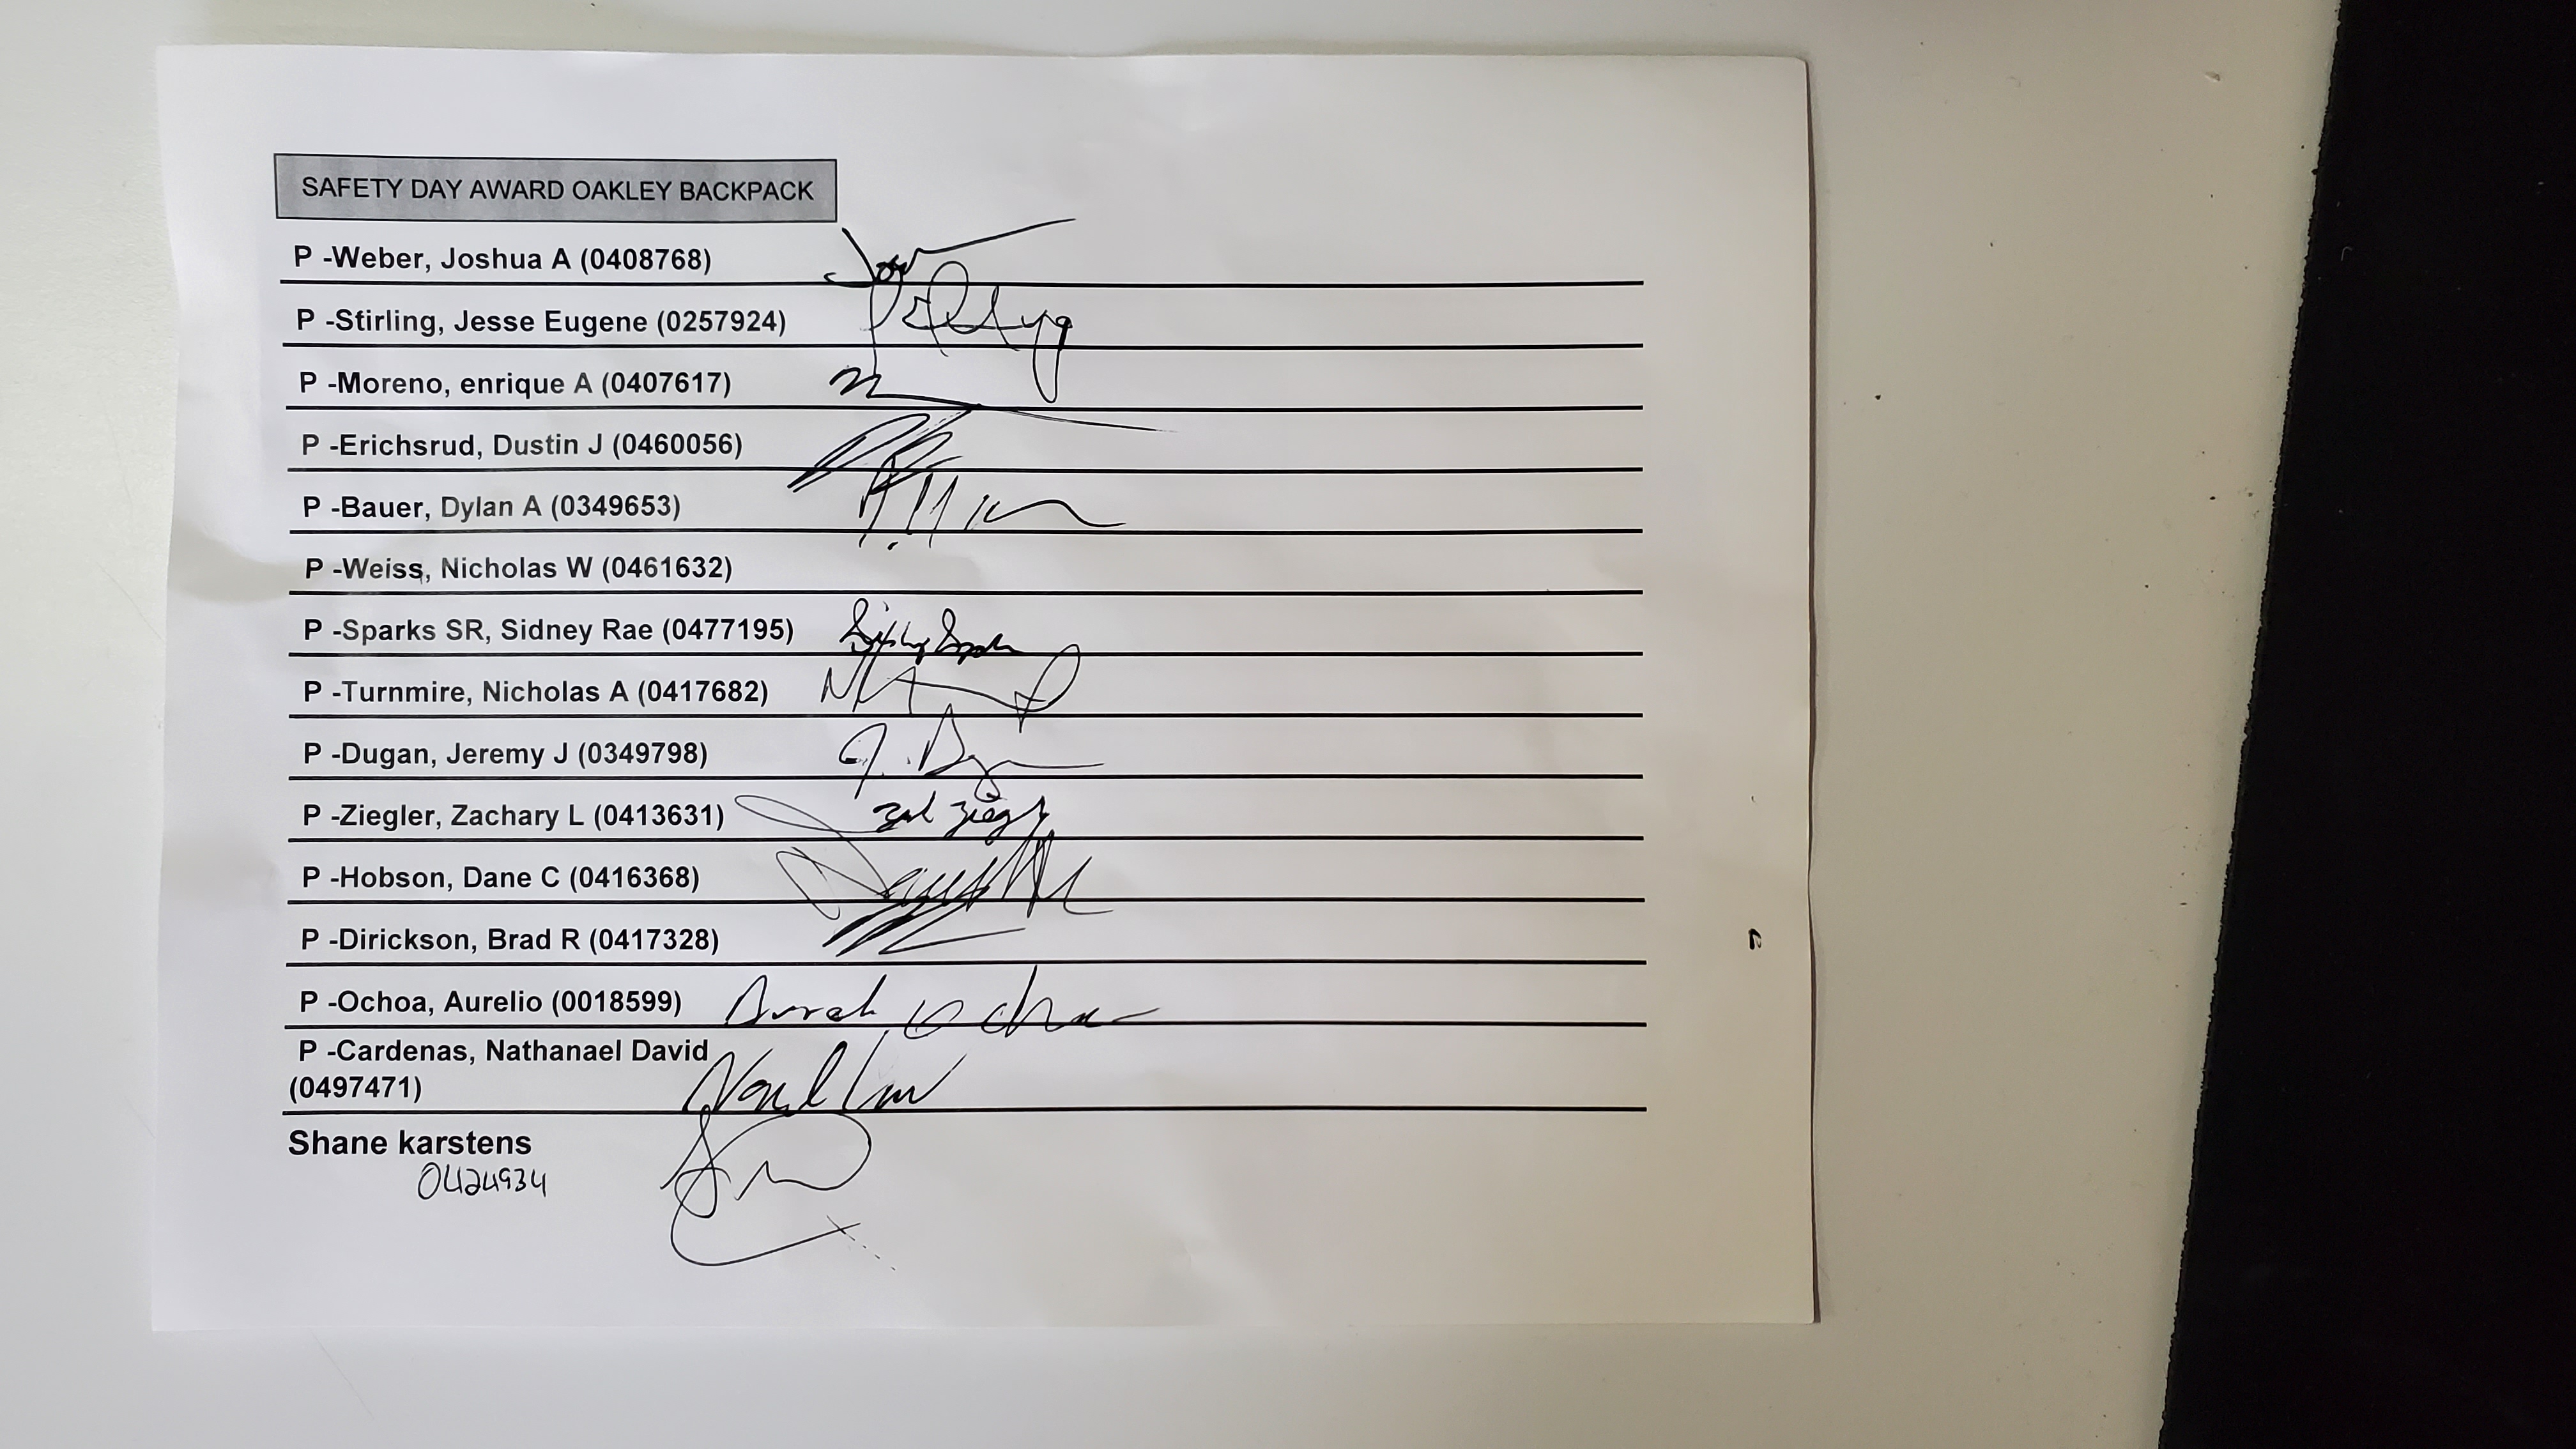 SAFETY DAY AWARD OAKLEY BACKPACK
P -Weber, Joshua A (0408768)
P -Stirling, Jesse Eugene (0257924)
P -Moreno, enrique A (0407617)
P -Erichsrud, Dustin J (0460056)
P -Bauer, Dylan A (0349653)
P -Weiss, Nicholas W (0461632)
P -Sparks SR, Sidney Rae (0477195)
P -Turnmire, Nicholas A (0417682)
P -Dugan, Jeremy J (0349798)
P -Ziegler, Zachary L (0413631)
P -Hobson, Dane C (0416368)
P -Dirickson, Brad R (0417328)
P -Ochoa, Aurelio (0018599)
P -Cardenas, Nathanael David
(0497471)
Shane karstens
0424934